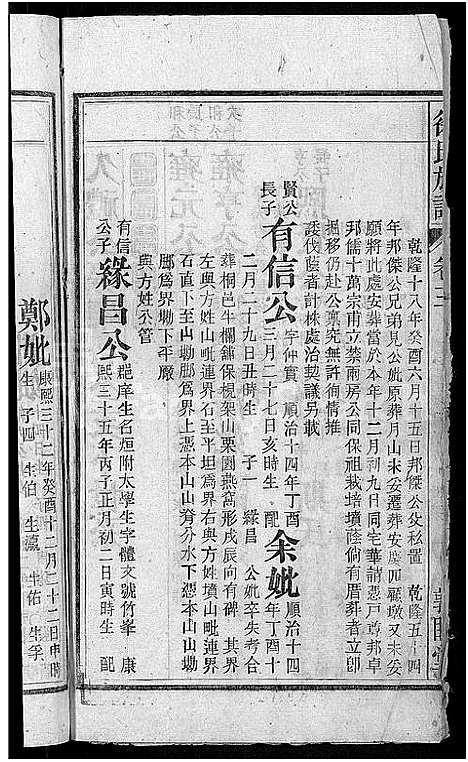 徐氏族譜 卷三
敦睦堂
乾隆十八年癸酉六月十五日邦傑公攴私置 乾隆五十四
年邦傑公兄弟見公妣原葬月山未妥遷葬安慶四顧墩又未妥
願將此處安葬當於本年十二月初九日同宅華譜憑戸尊邦卓
邦儒十萬宗甫立禁兩房公同保祖栽培墳蔭倘有厝葬者立即
掘移仍赴公稟究無許徇情推
諉伐蔭者計株處治契議另載
賢公長子 有信公 字仲實 順治十四年丁酉三月二十七日亥時生 配 余妣 順治十四年丁酉十
二月二十九日丑時生 子一 緣昌 公妣卒失考合
葬桐邑牛欄鋪保梘架山栗園燕窩形戌辰向有碑 其界
左與方姓山毗連界下至平坦爲界右與方姓墳山毗連界
石直下至山坳脚爲界上憑本山山脊分水下憑本山山坳
脚爲界坳下平廠
與方姓仝管
有信公子 緣昌公 郡庠生名烜附太學生字體文號竹峯 康熙三十五年丙子正月初二日寅時生 配
鄭妣 康熙三十二年癸酉十二月二十二日申時生 子四 生伯 生瀛 生佑 生孚